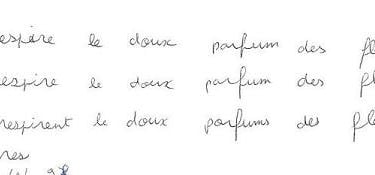 espire le doux parfum des fl
espire le doux parfum des fl
respirent le doux parfums des fle
res